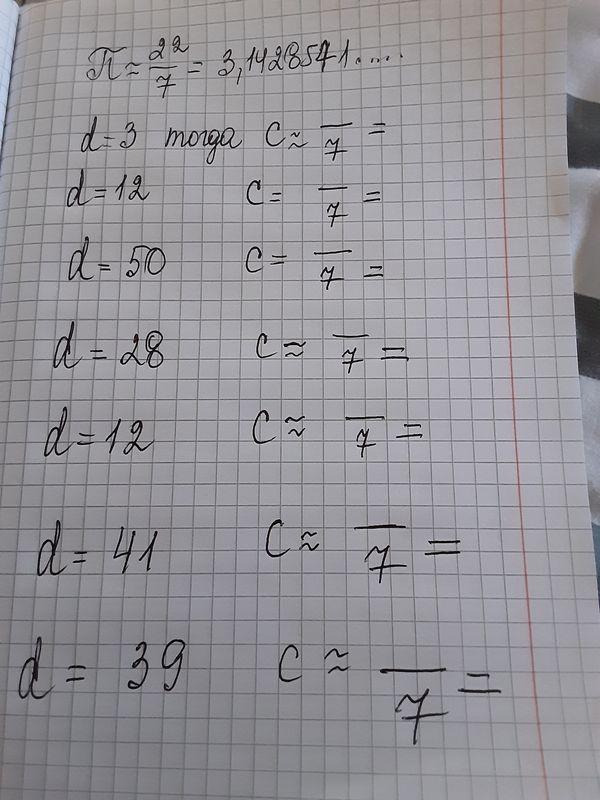 π ≈ 22/7 = 3,1428571....
d = 3 тогда C ≈ —/7 =
d = 12 C = —/7 =
d = 50 C = —/7 =
d = 28 C ≈ —/7 =
d = 12 C ≈ —/7 =
d = 41 C ≈ —/7 =
d = 39 C ≈ —/7 =